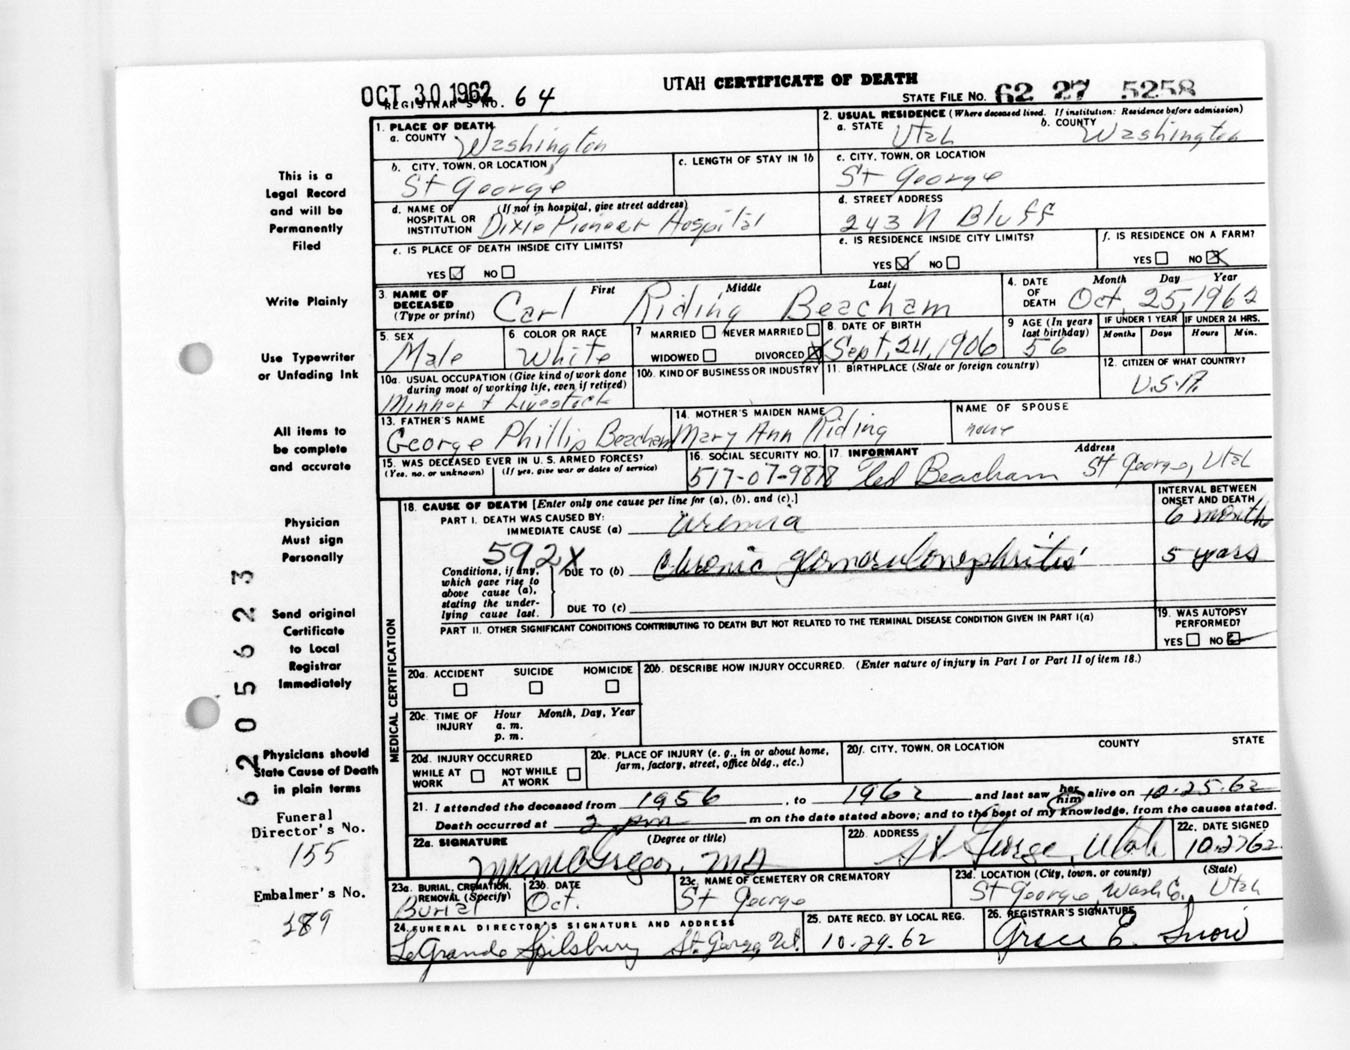 OCT 30 1962
UTAH CERTIFICATE OF DEATH
REGISTRAR'S NO. 64
STATE FILE NO. 62 27 5258
1. PLACE OF DEATH
a. COUNTY Washington
2. USUAL RESIDENCE (Where deceased lived. If institution: Residence before admission)
a. STATE Utah b. COUNTY Washington
b. CITY, TOWN, OR LOCATION St George
c. LENGTH OF STAY IN 1b
c. CITY, TOWN, OR LOCATION St George
d. NAME OF HOSPITAL OR INSTITUTION (If not in hospital, give street address) Dixie Pioneer Hospital
d. STREET ADDRESS 243 N Bluff
e. IS PLACE OF DEATH INSIDE CITY LIMITS?
YES NO
e. IS RESIDENCE INSIDE CITY LIMITS?
YES NO
f. IS RESIDENCE ON A FARM?
YES NO
3. NAME OF DECEASED (Type or print)
First Middle Last
Carl Riding Beacham
4. DATE OF DEATH Month Day Year
Oct, 25, 1962
5. SEX Male
6 COLOR OR RACE White
7 MARRIED NEVER MARRIED
WIDOWED DIVORCED
8. DATE OF BIRTH Sept, 24, 1906
9 AGE (In years last birthday) 56
IF UNDER 1 YEAR IF UNDER 24 HRS.
Months Days Hours Min.
10a. USUAL OCCUPATION (Give kind of work done during most of working life, even if retired)
Minner & Livestock
10b. KIND OF BUSINESS OR INDUSTRY
11. BIRTHPLACE (State or foreign country)
12. CITIZEN OF WHAT COUNTRY?
U.S.A.
13. FATHER'S NAME
George Phillip Beacham
14. MOTHER'S MAIDEN NAME
Mary Ann Riding
NAME OF SPOUSE
none
15. WAS DECEASED EVER IN U.S. ARMED FORCES?
(Yes, no, or unknown) (If yes, give war or dates of service)
16. SOCIAL SECURITY NO.
517-07-9878
17. INFORMANT Address
Ted Beacham St George, Utah
18. CAUSE OF DEATH [Enter only one cause per line for (a), (b), and (c).]
INTERVAL BETWEEN ONSET AND DEATH
PART I. DEATH WAS CAUSED BY:
IMMEDIATE CAUSE (a) uremia 6 month
592X
Conditions, if any, which gave rise to above cause (a), stating the underlying cause last.
DUE TO (b) Chronic glomerulonephritis 5 years
DUE TO (c)
PART II. OTHER SIGNIFICANT CONDITIONS CONTRIBUTING TO DEATH BUT NOT RELATED TO THE TERMINAL DISEASE CONDITION GIVEN IN PART I(a)
19. WAS AUTOPSY PERFORMED?
YES NO
20a. ACCIDENT SUICIDE HOMICIDE
20b. DESCRIBE HOW INJURY OCCURRED. (Enter nature of injury in Part I or Part II of item 18.)
20c. TIME OF INJURY Hour Month, Day, Year
a. m.
p. m.
20d. INJURY OCCURRED
WHILE AT WORK NOT WHILE AT WORK
20e. PLACE OF INJURY (e. g., in or about home, farm, factory, street, office bldg., etc.)
20f. CITY, TOWN, OR LOCATION COUNTY STATE
21. I attended the deceased from 1956, to 1962 and last saw her him alive on 10-25-62
Death occurred at 2 pm m on the date stated above; and to the best of my knowledge, from the causes stated.
22a. SIGNATURE (Degree or title)
MKMcGregor, MD
22b. ADDRESS
St George, Utah
22c. DATE SIGNED
10-27-62
23a. BURIAL, CREMATION, REMOVAL (Specify)
Burial
23b. DATE
Oct.
23c. NAME OF CEMETERY OR CREMATORY
St George
23d. LOCATION (City, town, or county) (State)
St George, Wash Co., Utah
24. FUNERAL DIRECTOR'S SIGNATURE AND ADDRESS
LeGrande Spilsbury St. George, Ut.
25. DATE RECD. BY LOCAL REG.
10-29-62
26. REGISTRAR'S SIGNATURE
Grace E. Snow
MEDICAL CERTIFICATION
This is a
Legal Record
and will be
Permanently
Filed
Write Plainly
Use Typewriter
or Unfading Ink
All items to
be complete
and accurate
Physician
Must sign
Personally
Send original
Certificate
to Local
Registrar
Immediately
Physicians should
State Cause of Death
in plain terms
Funeral
Director's No.
155
Embalmer's No.
289
62 205623